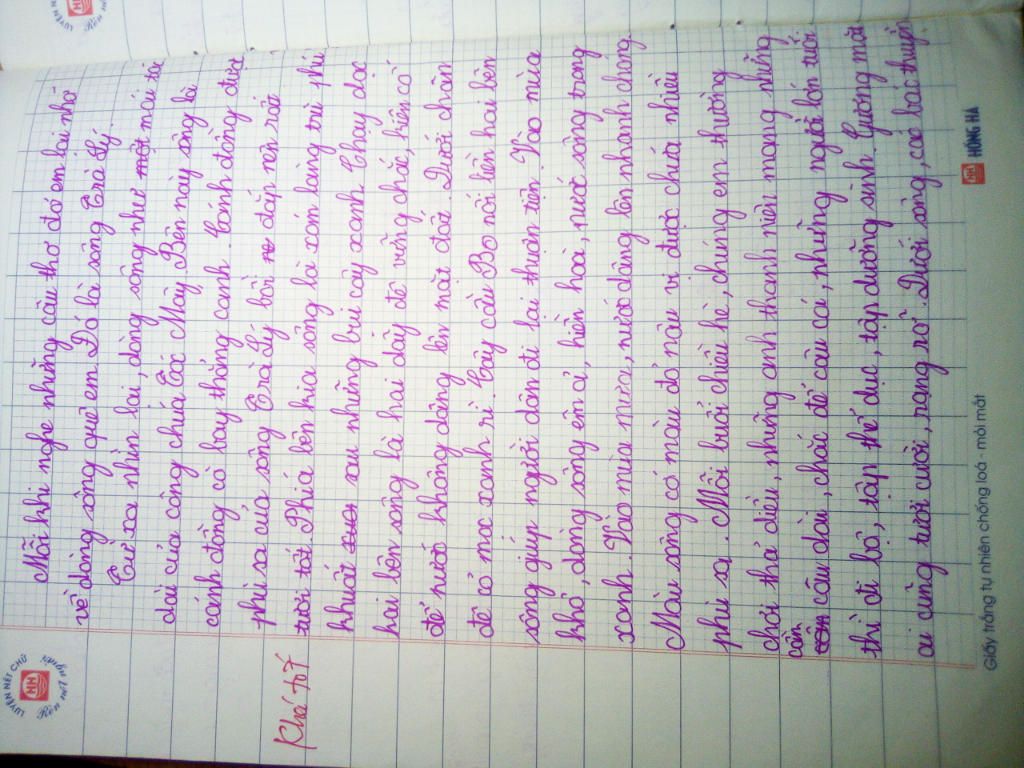 LUYỆN NẾT CHỮ
HH
Rèn nết người
Khá tốt
Mỗi khi nghe những câu thơ đó em lại nhớ
về dòng sông quê em. Đó là sông Trà Lý.
Từ xa nhìn lại, dòng sông như một mái tóc
dài của công chúa Tóc Mây. Bên này sông là
cánh đồng cò bay thẳng cánh. Cánh đồng được
phù sa của sông Trà Lý bồi đắp nên rất
tươi tốt. Phía bên kia sông là xóm làng trù phú
khuất sau những bụi cây xanh. Chạy dọc
hai bên sông là hai dãy đê vững chắc, kiên cố
để nước không dâng lên mặt đất. Dưới chân
đê cỏ mọc xanh rì. Cây cầu Bo nối liền hai bên
sông giúp người dân đi lại thuận tiện. Vào mùa
khô, dòng sông êm ả, hiền hoà, nước sông trong
xanh. Vào mùa mưa, nước dâng lên nhanh chóng.
Màu sông có màu đỏ nâu vì được chứa nhiều
phù sa. Mỗi buổi chiều hè, chúng em thường
chơi thả diều, những anh thanh niên mang những
cần câu dài, chắc để câu cá, những người lớn tuổi
thì đi bộ, tập thể dục, tập dưỡng sinh. Gương mặt
ai cũng tươi cười, rạng rỡ. Dưới sông, các bác thuyền
Giấy trắng tự nhiên chống loá - mỏi mắt
HH HỒNG HÀ
LUYỆN
Rèn nế